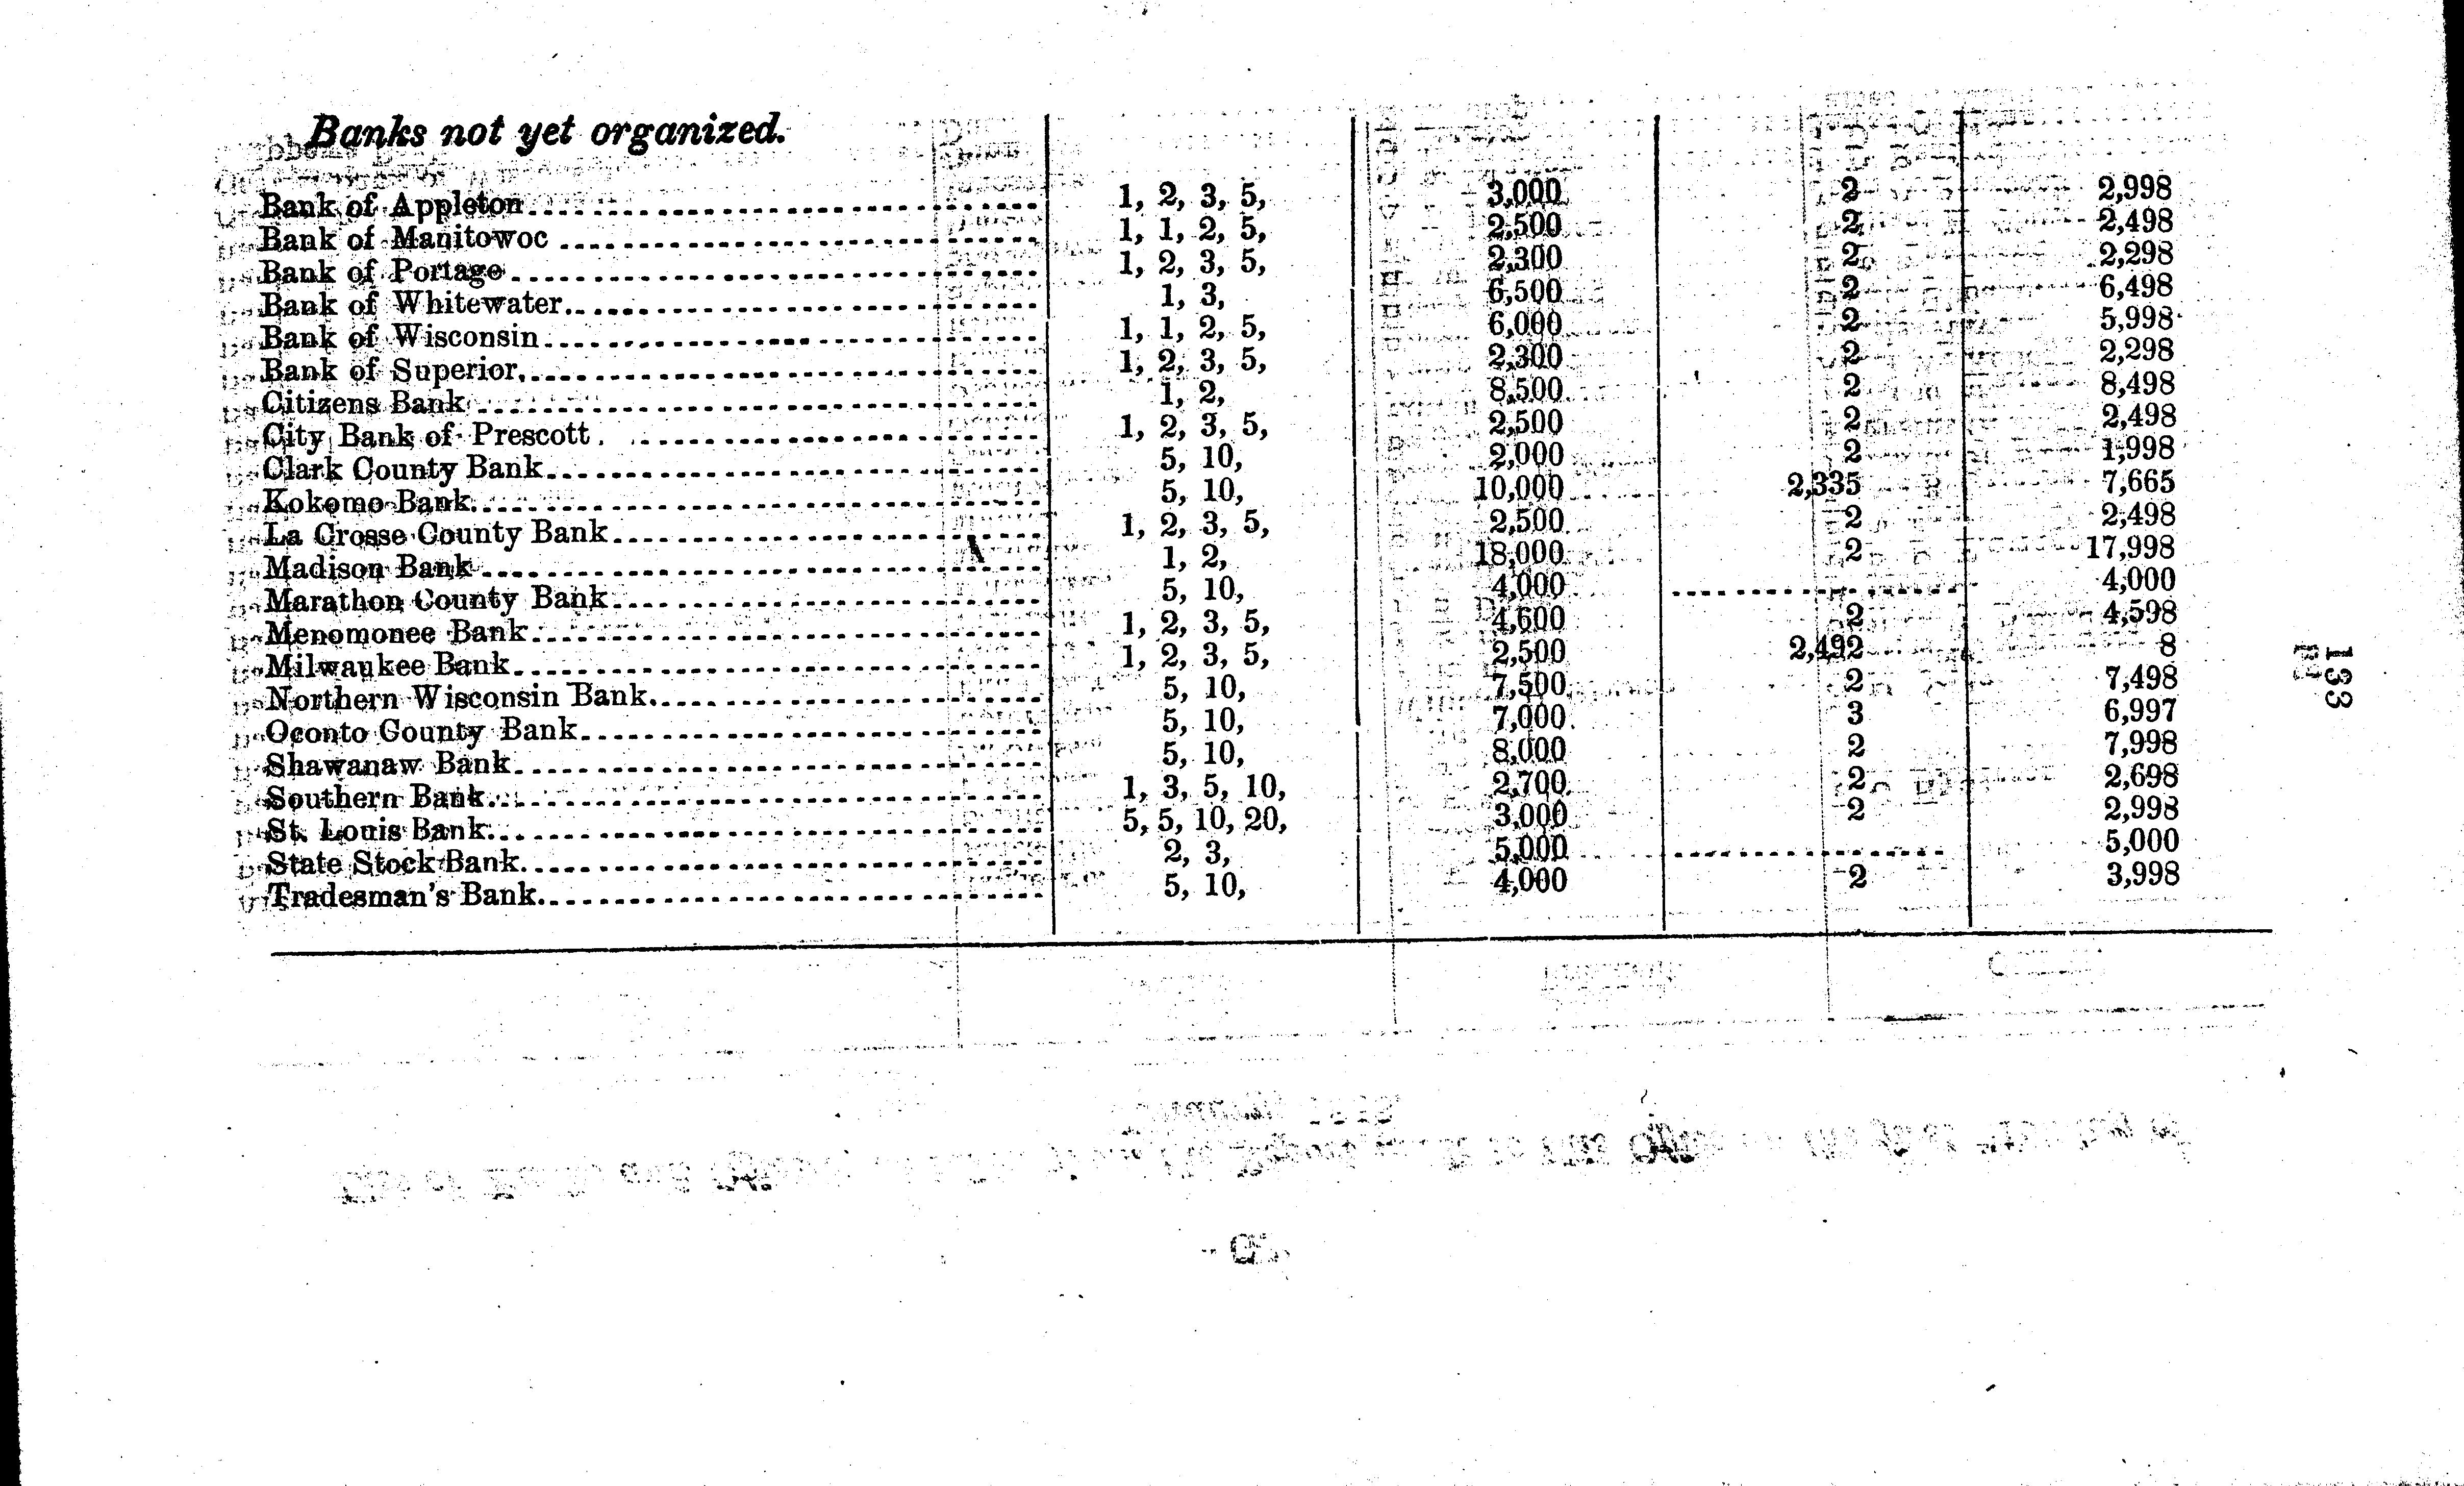 Banks not yet organized.
Bank of Appleton 1, 2, 3, 5, 3,000 2 2,998
Bank of Manitowoc 1, 1, 2, 5, 2,500 2 2,498
Bank of Portage 1, 2, 3, 5, 2,300 2 2,298
Bank of Whitewater 1, 3, 6,500 2 6,498
Bank of Wisconsin 1, 1, 2, 5, 6,000 2 5,998
Bank of Superior 1, 2, 3, 5, 2,300 2 2,298
Citizens Bank 1, 2, 8,500 2 8,498
City Bank of Prescott 1, 2, 3, 5, 2,500 2 2,498
Clark County Bank 5, 10, 2,000 2 1,998
Kokomo Bank 5, 10, 10,000 2,335 7,665
La Crosse County Bank 1, 2, 3, 5, 2,500 2 2,498
Madison Bank 1, 2, 18,000 2 17,998
Marathon County Bank 5, 10, 4,000 4,000
Menomonee Bank 1, 2, 3, 5, 4,600 2 4,598
Milwaukee Bank 1, 2, 3, 5, 2,500 2,492 8
Northern Wisconsin Bank 5, 10, 7,500 2 7,498
Oconto County Bank 5, 10, 7,000 3 6,997
Shawanaw Bank 5, 10, 8,000 2 7,998
Southern Bank 1, 3, 5, 10, 2,700 2 2,698
St. Louis Bank 5, 5, 10, 20, 3,000 2 2,998
State Stock Bank 2, 3, 5,000 5,000
Tradesman's Bank 5, 10, 4,000 2 3,998
133